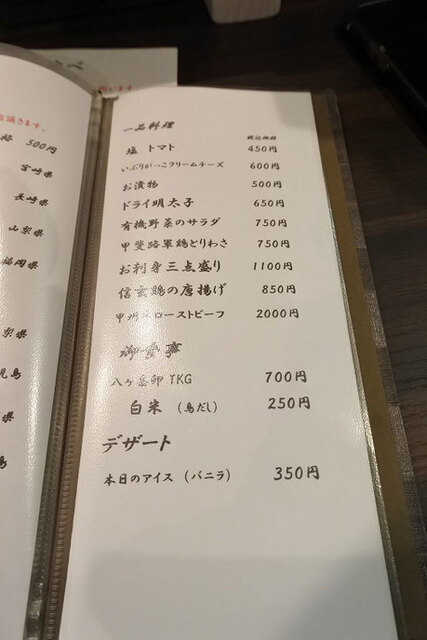 頂きます。
500円
宮崎県
長崎県
山梨県
福岡県
梨県
児島
県
島
一品料理
税込価格
塩 トマト 450円
いぶりがっこクリームチーズ 600円
お漬物 500円
ドライ明太子 650円
有機野菜のサラダ 750円
甲斐路軍鶏とりわさ 750円
お刺身三点盛り 1100円
信玄鶏の唐揚げ 850円
甲州 ローストビーフ 2000円
御食事
八ヶ岳卵 TKG 700円
白米 (鳥だし) 250円
デザート
本日のアイス (バニラ) 350円